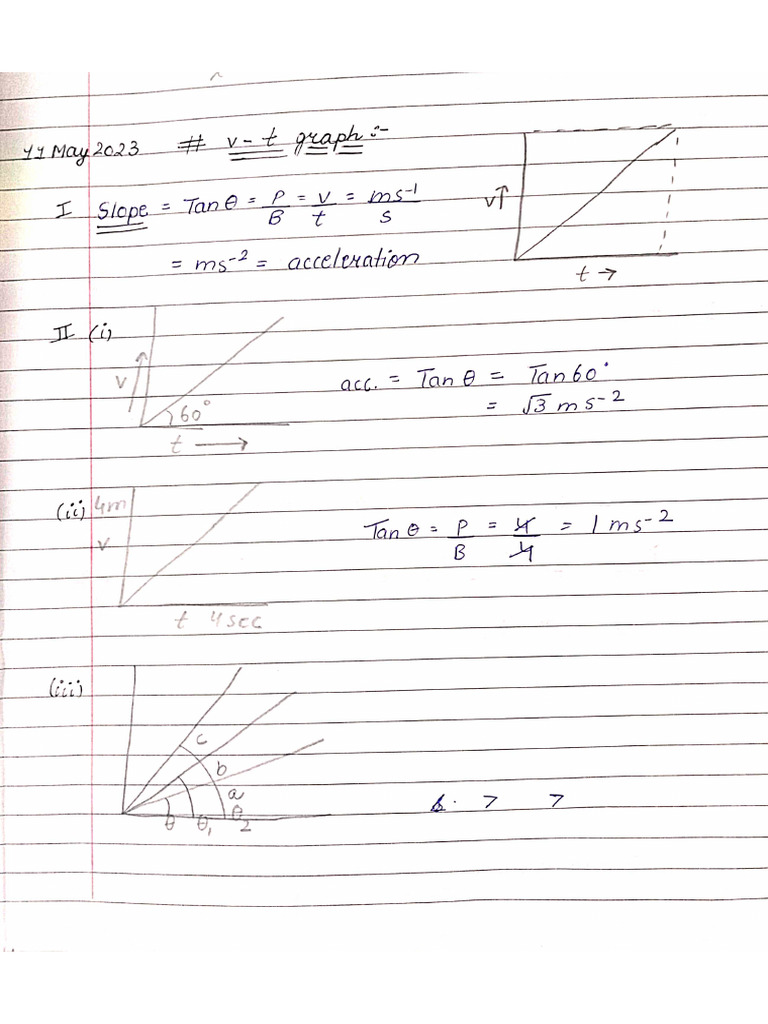 11 May 2023 # v - t graph :-
I Slope = Tan θ = P/B = v/t = ms⁻¹/s
= ms⁻² = acceleration
v↑
t →
II (i)
v
60°
t →
acc. = Tan θ = Tan 60°
= √3 ms⁻²
(ii) 4m
v
t 4 sec
Tan θ = P/B = 4/4 = 1 ms⁻²
(iii)
c
b
a
θ θ₁ θ₂
> >